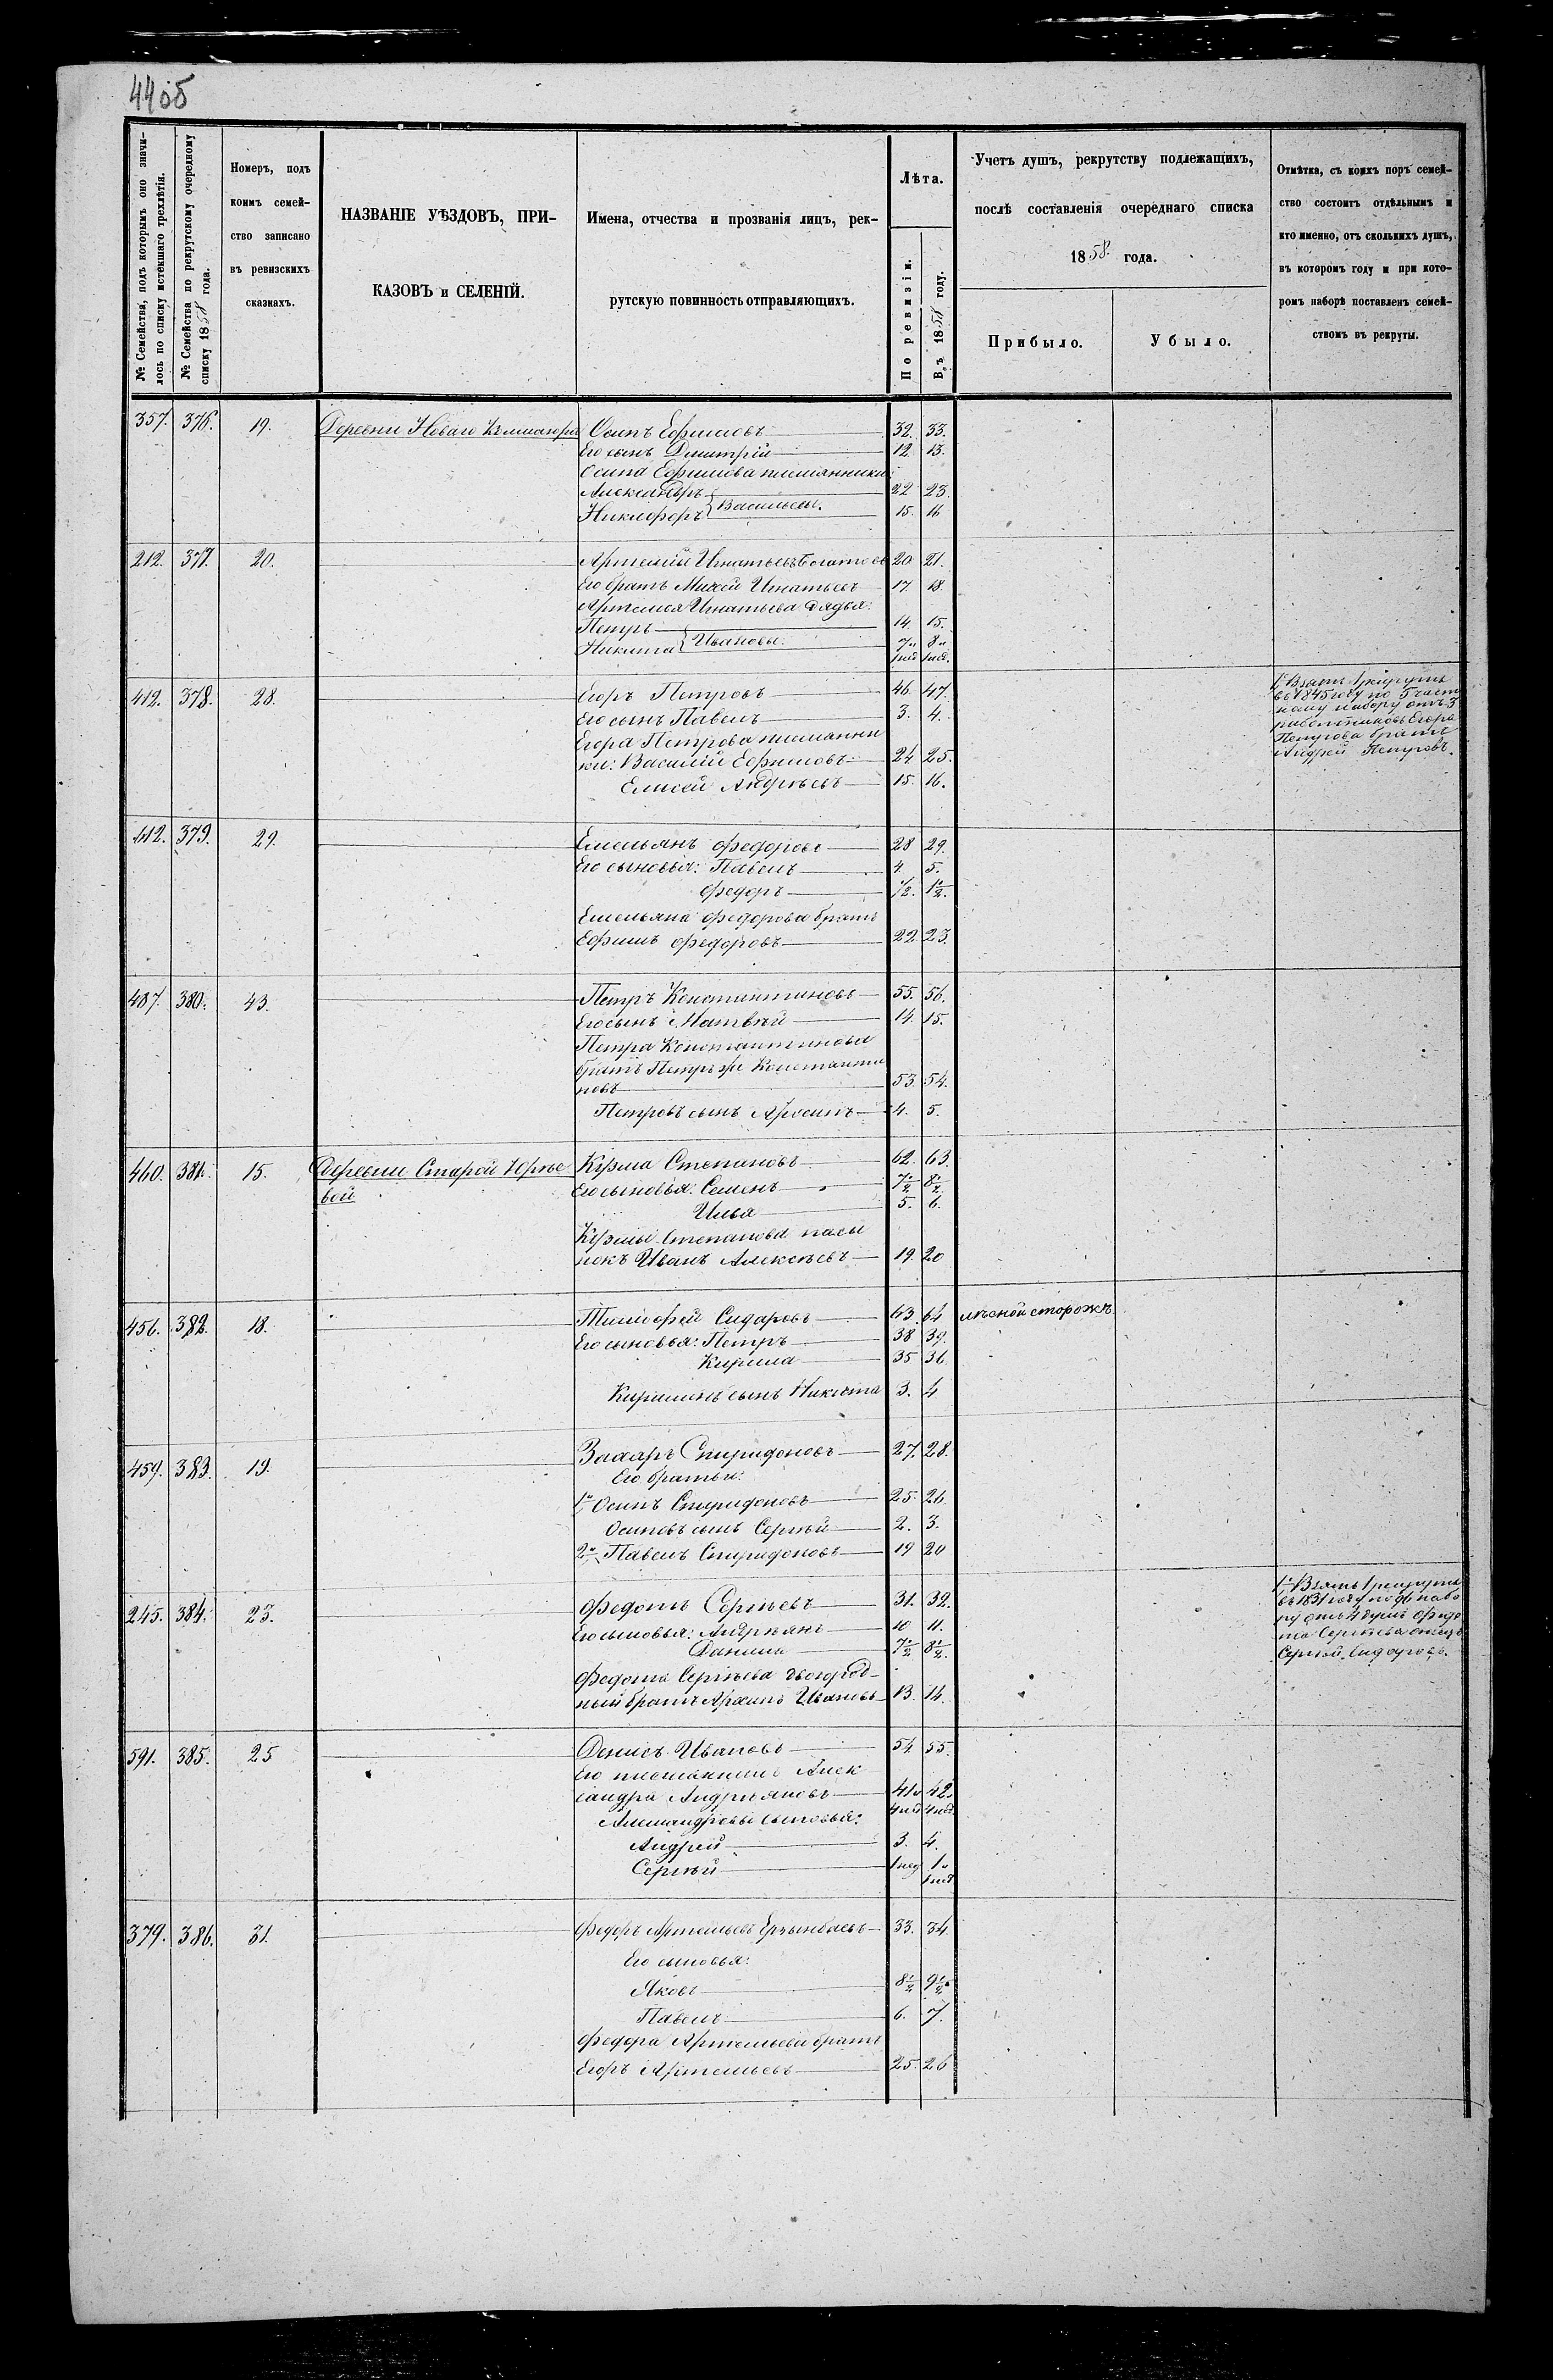 4405
№ Семейства, подъ которымъ оно значи-
лось по списку истекшаго трехлѣтія.
№ Семейства по рекрутскому очередному
списку 1858 года.
Номеръ, подъ
коимъ семей-
ство записано
въ ревизскихъ
сказкахъ.
НАЗВАНІЕ УѢЗДОВЪ, ПРИ-
КАЗОВЪ и СЕЛЕНІЙ.
Имена, отчества и прозванія лицъ, рек-
рутскую повинность отправляющихъ.
Лѣта.
По ревизіи.
Въ 1858 году.
Учетъ душъ, рекрутству подлежащихъ,
послѣ составленія очереднаго списка
1858 года.
Прибыло.
Убыло.
Отмѣтка, съ коихъ поръ семей-
ство состоитъ отдѣльнымъ и
кто именно, отъ сколькихъ душъ,
въ которомъ году и при кото-
ромъ наборѣ поставленъ семей-
ствомъ въ рекруты.
357. 376. 19. Деревни Новаго Осипъ Ефимовъ 32. 33.
Его сынъ Димитрій 12. 13.
Осипа Ефимова племянники:
Александръ 22 23.
Никифоръ Васильевы. 15. 16
212. 377. 20. Артемій Игнатьевъ 20 21.
Его братъ Михей Игнатьевъ 17. 18.
Артемья Игнатьева дядья:
Петръ 14. 15.
Никита Ивановы. 7 8
1 нед 1 нед.
412. 378. 28. Егоръ Петровъ 46. 47.
Его сынъ Павелъ 3. 4.
Егора Петрова племянни
ки: Василій Ефимовъ 24 25.
Елисей Андреевъ 15. 16.
Взятъ въ рекруты
въ 1845 году по 5 част
ному набору отъ 3
работниковъ Егора
Петрова братъ
Андрей Петровъ.
412. 379. 29. Емельянъ Федоровъ 28 29.
Его сыновья: Павелъ 4. 5.
Федоръ 1/2. 1 1/2.
Емельяна Федорова братъ
Ефимъ Федоровъ 22 23.
487. 380. 43. Петръ Константиновъ 55. 56.
Его сынъ Матвѣй 14. 15.
Петра Константинова
братъ Петръ же Константи
новъ 53. 54.
Петровъ сынъ Архипъ 4. 5.
460. 381. 15. Деревни Старой Юрье
вой
Кузма Степановъ 62. 63.
Его сыновья: Семенъ 7 1/2 8 1/2
Илья 5. 6.
Кузмы Степанова пасы
нокъ Иванъ Алексѣевъ 19. 20
456. 382. 18. Тимофей Сидаровъ 63. 64 лѣсной сторожъ.
Его сыновья: Петръ 38 39.
Кирила 35 36.
Кириллинъ сынъ Никита 3. 4
459. 383. 19. Захаръ Спиридоновъ 27. 28.
Его братья:
1е Осипъ Спиридоновъ 25. 26
Осиповъ сынъ Сергѣй 2. 3.
2е Павелъ Спиридоновъ 19 20
245. 384. 23. Федотъ Сергѣевъ 31. 32.
Его сыновья: Андреянъ 10 11.
Данила 7 1/2 8 1/2.
Федота Сергѣева двоюрод-
ный братъ Архипъ Ивановъ 13. 14.
Взятъ въ рекруты
въ 1831 году по 96 набо
ру отъ 4 душъ Федо
та Сергѣева отецъ
Сергѣй Сидоровъ.
591. 385. 25 Денисъ Ивановъ 54 55.
Его племянникъ Алек
сандра Андреяновъ 41 42.
4 нед 4 нед.
Александровы сыновья:
Андрей 3. 4.
Сергѣй 1 нед 1
1 нед
379. 386. 31. Федоръ Артемьевъ 33. 34.
Его сыновья:
Яковъ 8 1/2 9 1/2
Павелъ 6. 7.
Федора Артемьева братъ
Егоръ Артемьевъ 25. 26